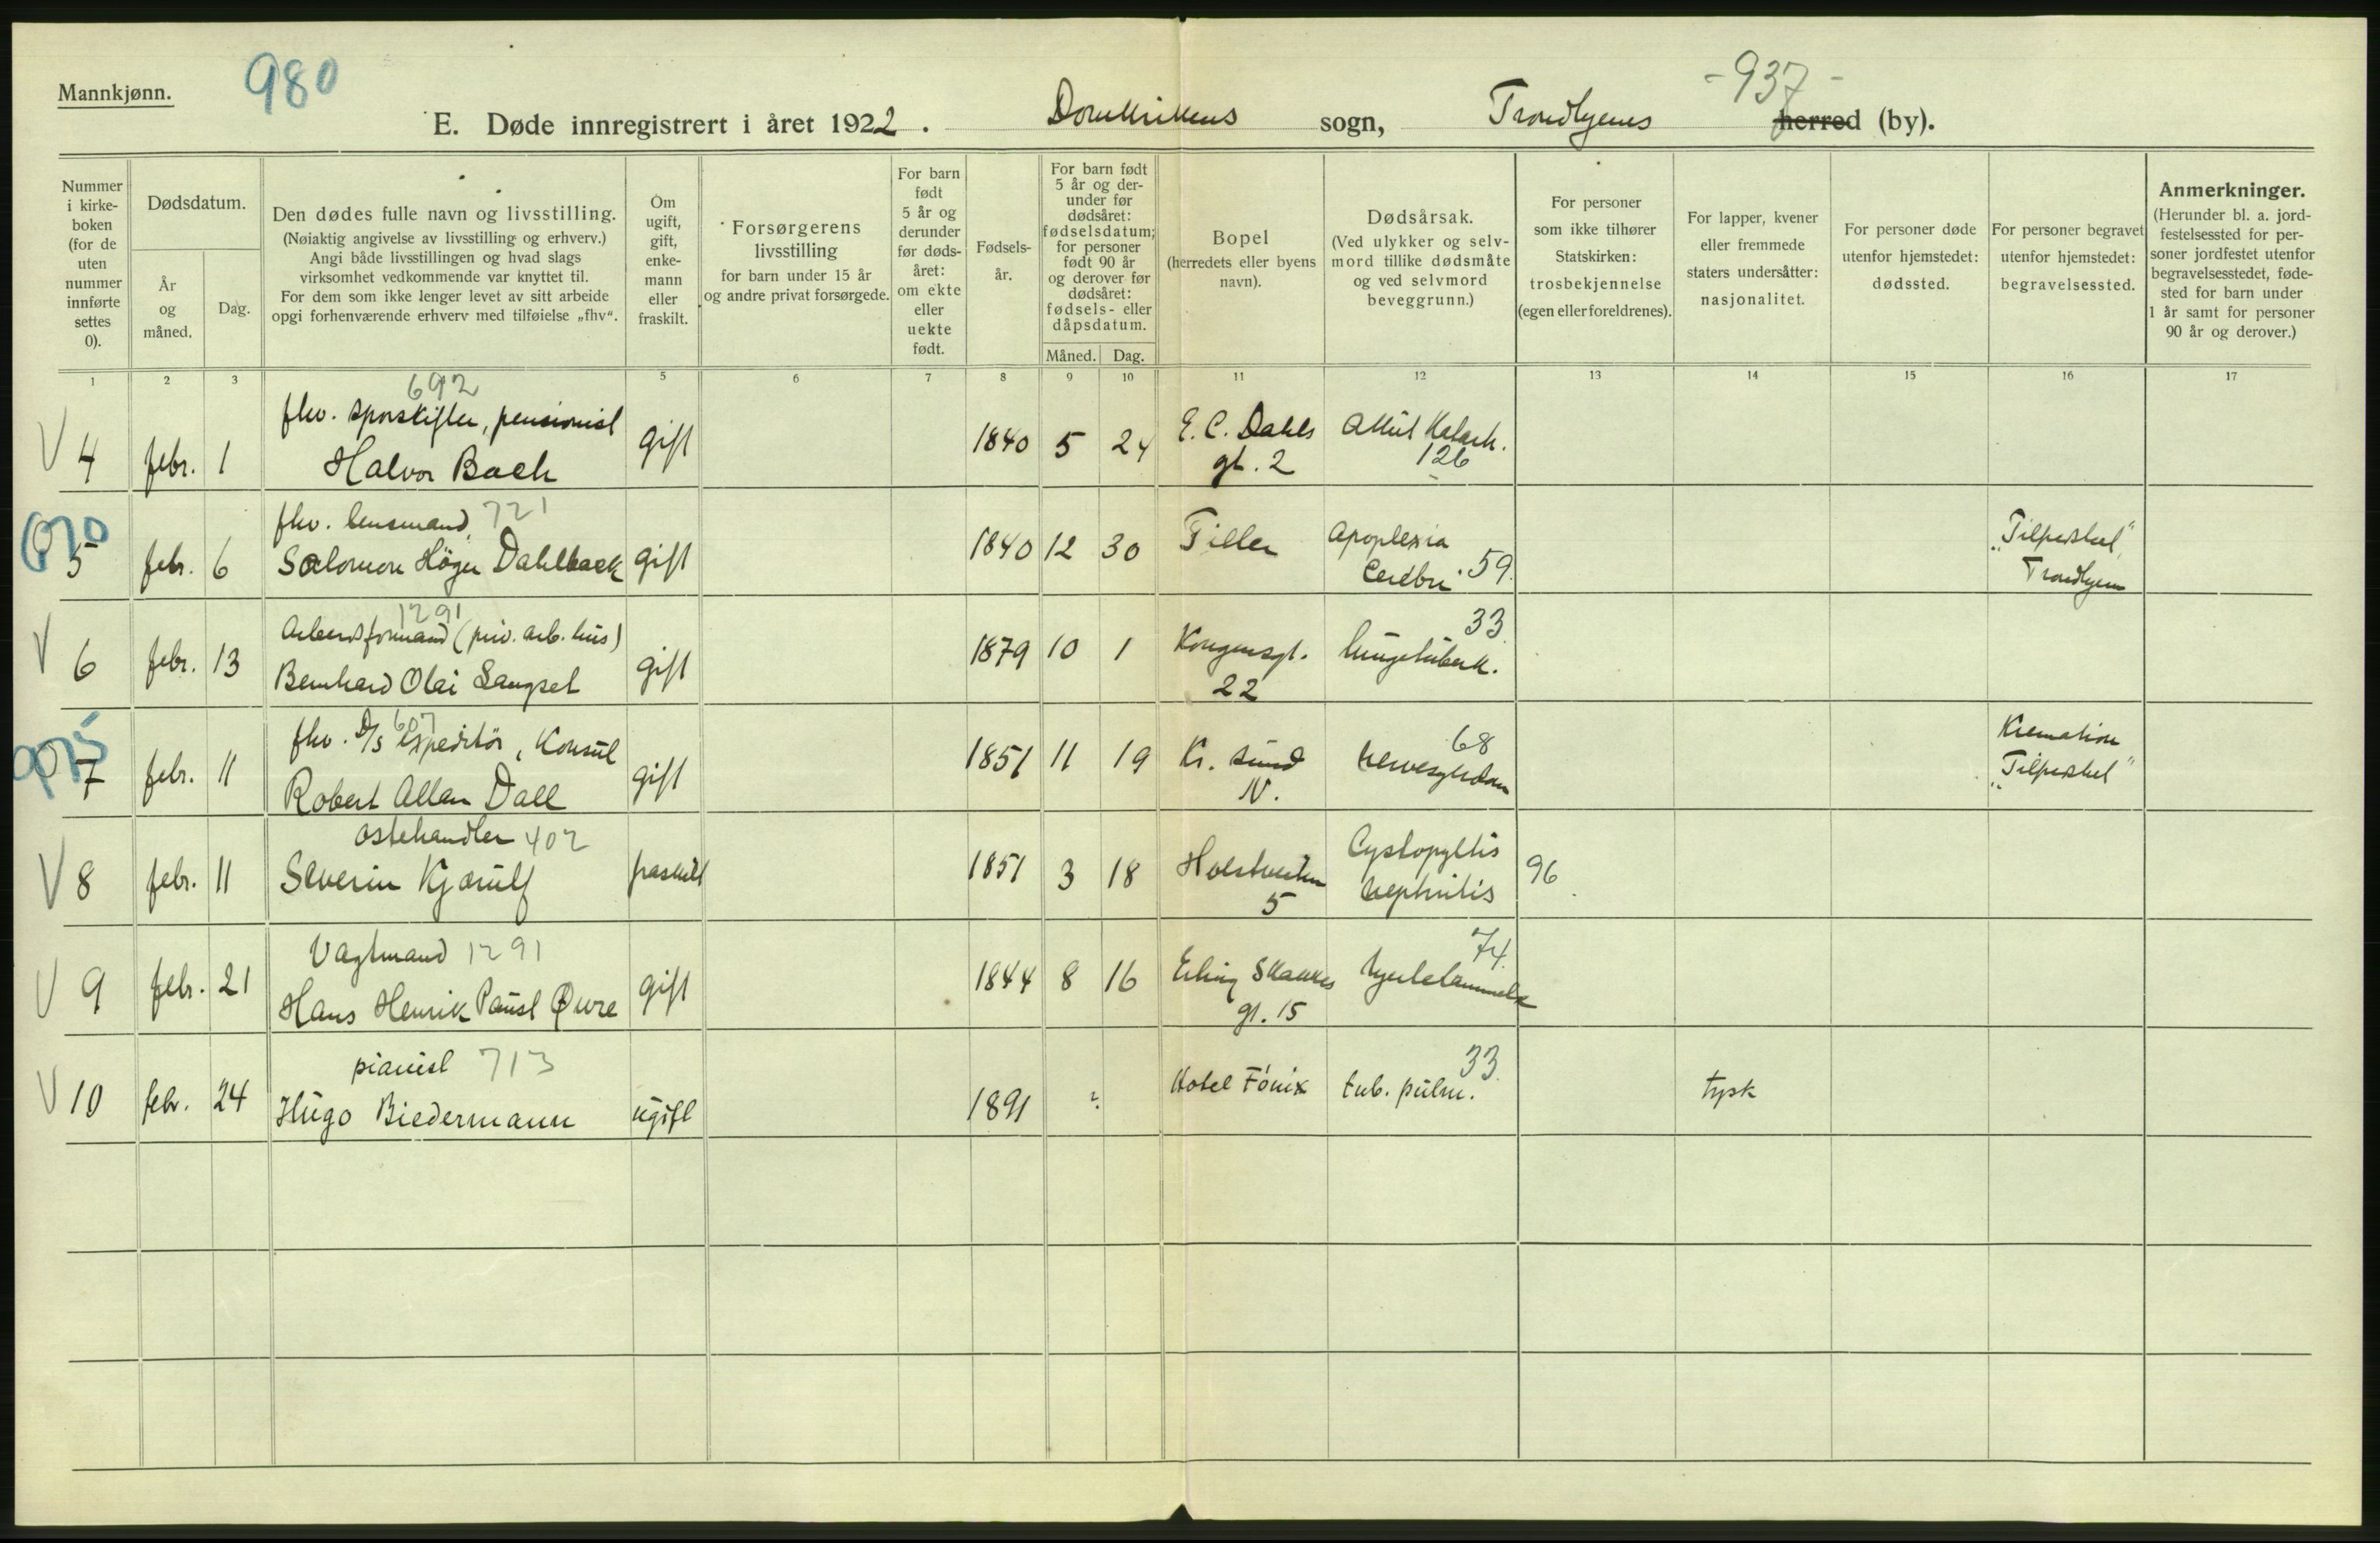 Mannkjønn.
980
-937-
E. Døde innregistrert i året 1922. Domkirkens sogn, Trondhjems herred (by).
Nummer i kirke-boken (for de uten nummer innførte settes 0).
Dødsdatum.
År og måned.
Dag.
Den dødes fulle navn og livsstilling.
(Nøiaktig angivelse av livsstilling og erhverv.)
Angi både livsstillingen og hvad slags
virksomhet vedkommende var knyttet til.
For dem som ikke lenger levet av sitt arbeide
opgi forhenværende erhverv med tilføielse „fhv“.
Om ugift, gift, enke-mann eller fraskilt.
Forsørgerens
livsstilling
for barn under 15 år
og andre privat forsørgede.
For barn født 5 år og derunder før døds-året: om ekte eller uekte født.
Fødsels-år.
For barn født 5 år og der-under før dødsåret: fødselsdatum; for personer født 90 år og derover før dødsåret: fødsels- eller dåpsdatum.
Måned. Dag.
Bopel
(herredets eller byens
navn).
Dødsårsak.
(Ved ulykker og selv-
mord tillike dødsmåte
og ved selvmord
beveggrunn.)
For personer
som ikke tilhører
Statskirken:
trosbekjennelse
(egen eller foreldrenes).
For lapper, kvener
eller fremmede
staters undersåtter:
nasjonalitet.
For personer døde
utenfor hjemstedet:
dødssted.
For personer begravet
utenfor hjemstedet:
begravelsessted.
Anmerkninger.
(Herunder bl. a. jord-
festelsessted for per-
soner jordfestet utenfor
begravelsesstedet, føde-
sted for barn under
1 år samt for personer
90 år og derover.)
1 2 3 5 6 7 8 9 10 11 12 13 14 15 16 17
692
fhv. sporskifter, pensionist
V 4 febr. 1 Halvor Bach gift 1840 5 24 E. C. Dahls gt. 2 Akut Katarrh. 126
fhv. lensmand 721
5 febr. 6 Salomon Höyer Dahlback gift 1840 12 30 Tiller Apoplexia Cerebri 59. „Tilfredshet“, Trondhjem
1291
Arbeidsformand (priv. arb. hus)
V 6 febr. 13 Bernhard Olai Langset gift 1879 10 1 Kongensgt. 22 lungetuberk. 33
607
fhv. D/S Expeditör, Konsul
7 febr. 11 Robert Allan Dall gift 1851 11 19 Kr. sund N. nervesygdom 68 Kremation „Tilfredshet“
ostehandler 402
V 8 febr. 11 Severin Kjærulf fraskilt 1851 3 18 5 Cystopyltis nephritis 96
Vagtmand 1291
V 9 febr. 21 Hans Henrik Paust Øvre gift 1844 8 16 Erling Skakkes gt. 15 hjertelammelse 74.
pianist 713
V 10 febr. 24 Hugo Biedermann ugift 1891 ? Hotel Fónix tub. pulm. 33. tysk